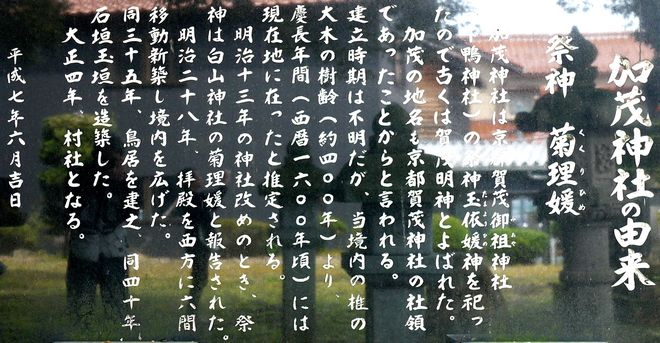 加茂神社の由来
祭神　菊理媛
くくりひめ
加茂神社は京都賀茂御祖神社
みおや
下鴨神社）の祭神玉依媛神を祀っ
たまよりひめ
たので古くは賀茂明神とよばれた。
加茂の地名も京都賀茂神社の社領
であったことからと言われる。
建立時期は不明だが、当境内の椎の
大木の樹齢（約四〇〇年）より、
慶長年間（西暦一六〇〇年頃）には
現在地に在ったと推定される。
明治十三年の神社改めのとき、祭
神は白山神社の菊理媛と報告された。
明治二十八年、拝殿を西方に六間
移動新築し境内を広げた。
同三十五年、鳥居を建之、同四十年、
石垣玉垣を造築した。
大正四年、村社となる。
平成七年六月吉日